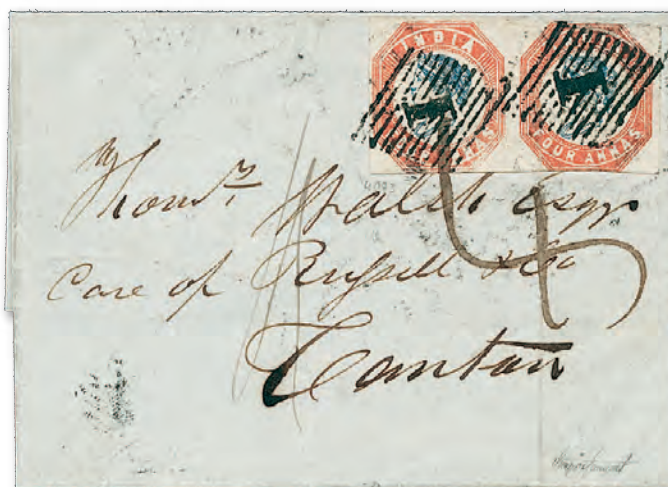 INDIA
FOUR ANNAS
1
1
4
Thos. Walsh Esqr
Care of Russell & Co
Canton